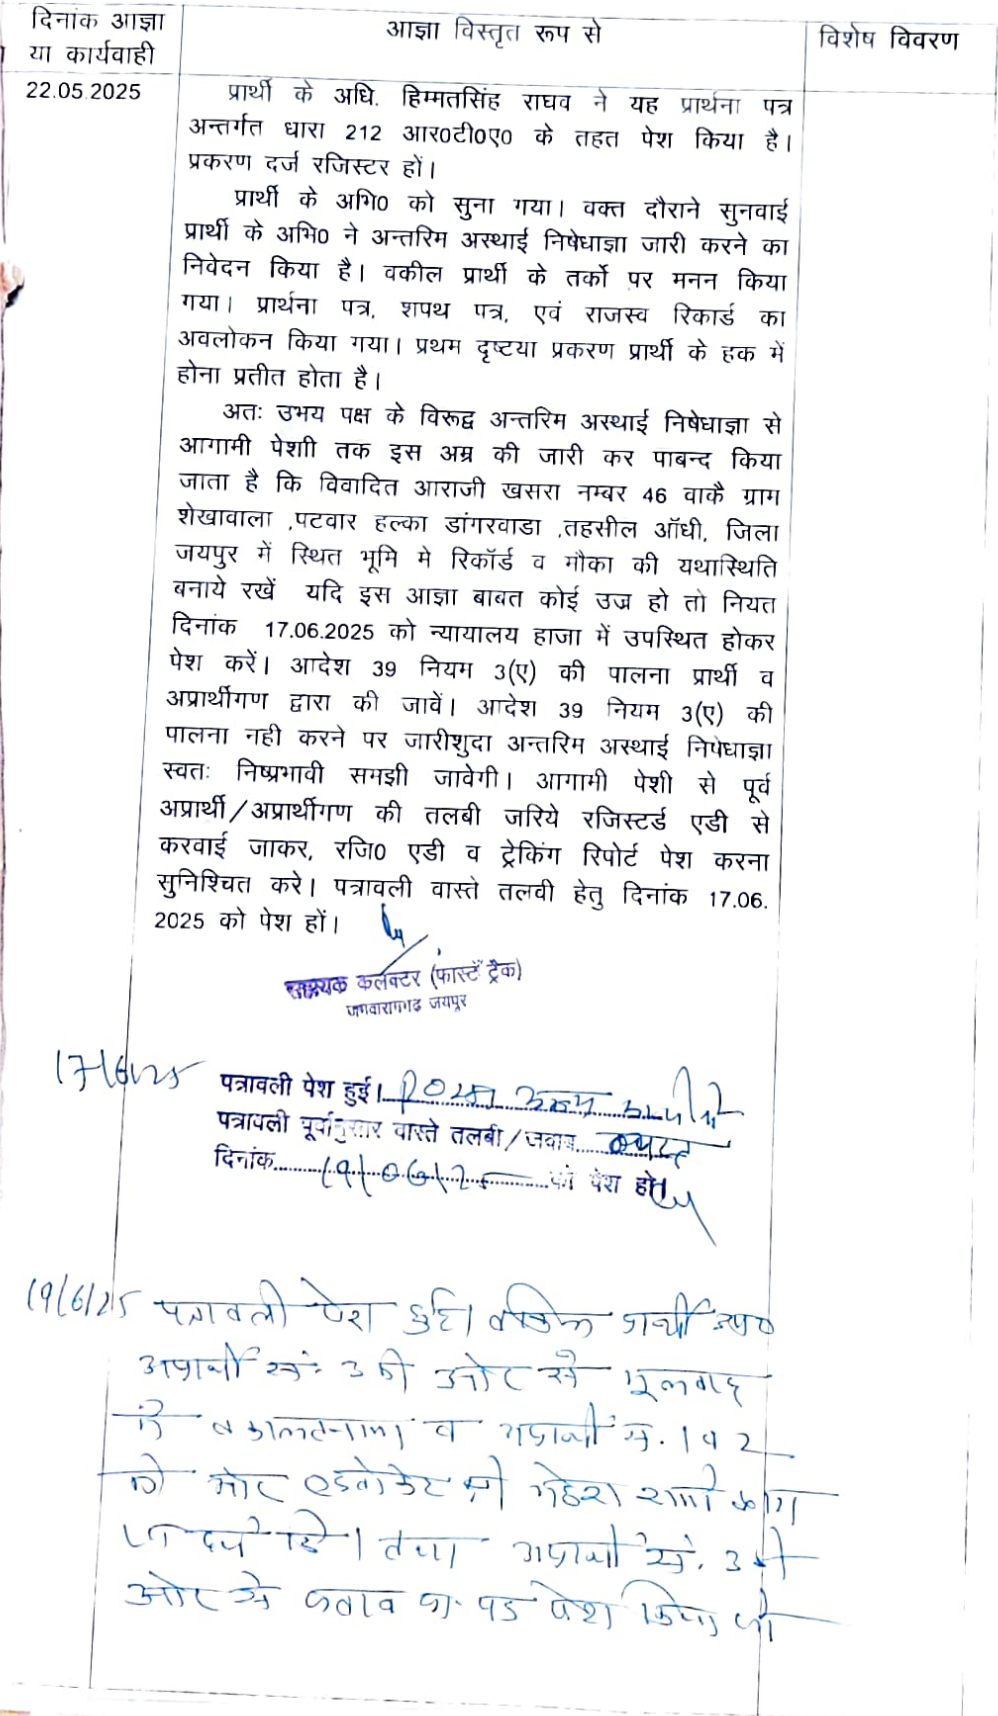 दिनांक आज्ञा
या कार्यवाही
आज्ञा विस्तृत रूप से
विशेष विवरण
22.05.2025
प्रार्थी के अधि. हिम्मतसिंह राघव ने यह प्रार्थना पत्र
अन्तर्गत धारा 212 आर0टी0ए0 के तहत पेश किया है।
प्रकरण दर्ज रजिस्टर हों।
प्रार्थी के अभि0 को सुना गया। वक्त दौराने सुनवाई
प्रार्थी के अभि0 ने अन्तरिम अस्थाई निषेधाज्ञा जारी करने का
निवेदन किया है। वकील प्रार्थी के तर्को पर मनन किया
गया। प्रार्थना पत्र, शपथ पत्र, एवं राजस्व रिकार्ड का
अवलोकन किया गया। प्रथम दृष्टया प्रकरण प्रार्थी के हक में
होना प्रतीत होता है।
अतः उभय पक्ष के विरूद्व अन्तरिम अस्थाई निषेधाज्ञा से
आगामी पेशाी तक इस अम्र की जारी कर पाबन्द किया
जाता है कि विवादित आराजी खसरा नम्बर 46 वाकै ग्राम
शेखावाला ,पटवार हल्का डांगरवाडा ,तहसील ऑधी, जिला
जयपुर में स्थित भूमि मे रिकॉर्ड व मौका की यथास्थिति
बनाये रखें यदि इस आज्ञा बाबत कोई उज्र हो तो नियत
दिनांक 17.06.2025 को न्यायालय हाजा में उपस्थित होकर
पेश करें। आदेश 39 नियम 3(ए) की पालना प्रार्थी व
अप्रार्थीगण द्वारा की जावें। आदेश 39 नियम 3(ए) की
पालना नही करने पर जारीशुदा अन्तरिम अस्थाई निषेधाज्ञा
स्वतः निष्प्रभावी समझी जावेगी। आगामी पेशी से पूर्व
अप्रार्थी/अप्रार्थीगण की तलबी जरिये रजिस्टर्ड एडी से
करवाई जाकर, रजि0 एडी व ट्रेकिंग रिपोर्ट पेश करना
सुनिश्चित करे। पत्रावली वास्ते तलवी हेतु दिनांक 17.06.
2025 को पेश हों।
सहायक कलेक्टर (फास्ट ट्रैक)
जमवारामगढ जयपुर
17/6/25
पत्रावली पेश हुई।
पत्रावली पूर्वानुसार वास्ते तलबी/जवाब
दिनांक 19/06/25 को पेश हो।
19/6/25 पत्रावली पेश हुई। वकील प्रार्थी उप०
अप्रार्थी सं. 3 की ओर से मूलवाद
में वकालतनामा व अप्रार्थी सं. 1 व 2
की ओर एडवोकेट श्री महेश शर्मा
तथा अप्रार्थी सं. 3 की
ओर से जवाब प्रा. पत्र पेश किया जो